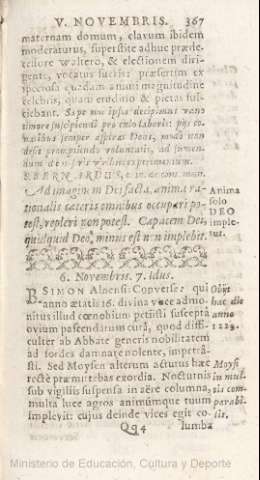 V. NOVEMBRIS. 367
maternam domum, clavum ibidem
moderaturus, superstite adhuc præde-
cessore Waltero, & electionem diri-
gente, vocatus fuisti: præsertim ex
speciosa quadam animi magnitudine
celebris, quam eruditio & pietas
ciebant. Sæpe mox ipsa decipimur vano
timore suscipiendi pro cælo laboris:
semper aspirat Deus, modo non
desit promptitudo voluntatis, ad
BERNARDUS,
Ad imaginem Dei facta, anima ra-
tionalis cæteris omnibus occupari po-
test, repleri non potest. Capacem Dei,
quidquid Deo, minus est non implebit.
Anima
solo
DEO
imple
tur.
6. Novembris. 7. Idus.
B SIMON Alnensis Converse: qui
anno ætatis 16. divina voce admo-
nitus illud cœnobium petiisti suscepta
ovium pascendarum curâ, quod diffi-
culter ab Abbate generis nobilitatem
ad sordes damnare nolente, impetrâ-
sti. Sed Moysen alterum acturus hæc
recte præmittebas exordia. Nocturnis
sub vigiliis suspensa in aëre columna,
multa luce agros animúmque tuum
implevit: cujus deinde vices egit co-
Obijt
hac die
anno
1229.
Moysi
in mul-
tis com-
parabi-
lis.
Qq 4 lumba
Ministerio de Educación, Cultura y Deporte